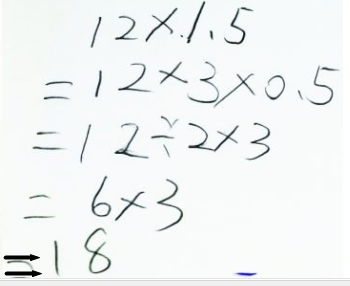 12×1.5
=12×3×0.5
=12÷2×3
=6×3
=18